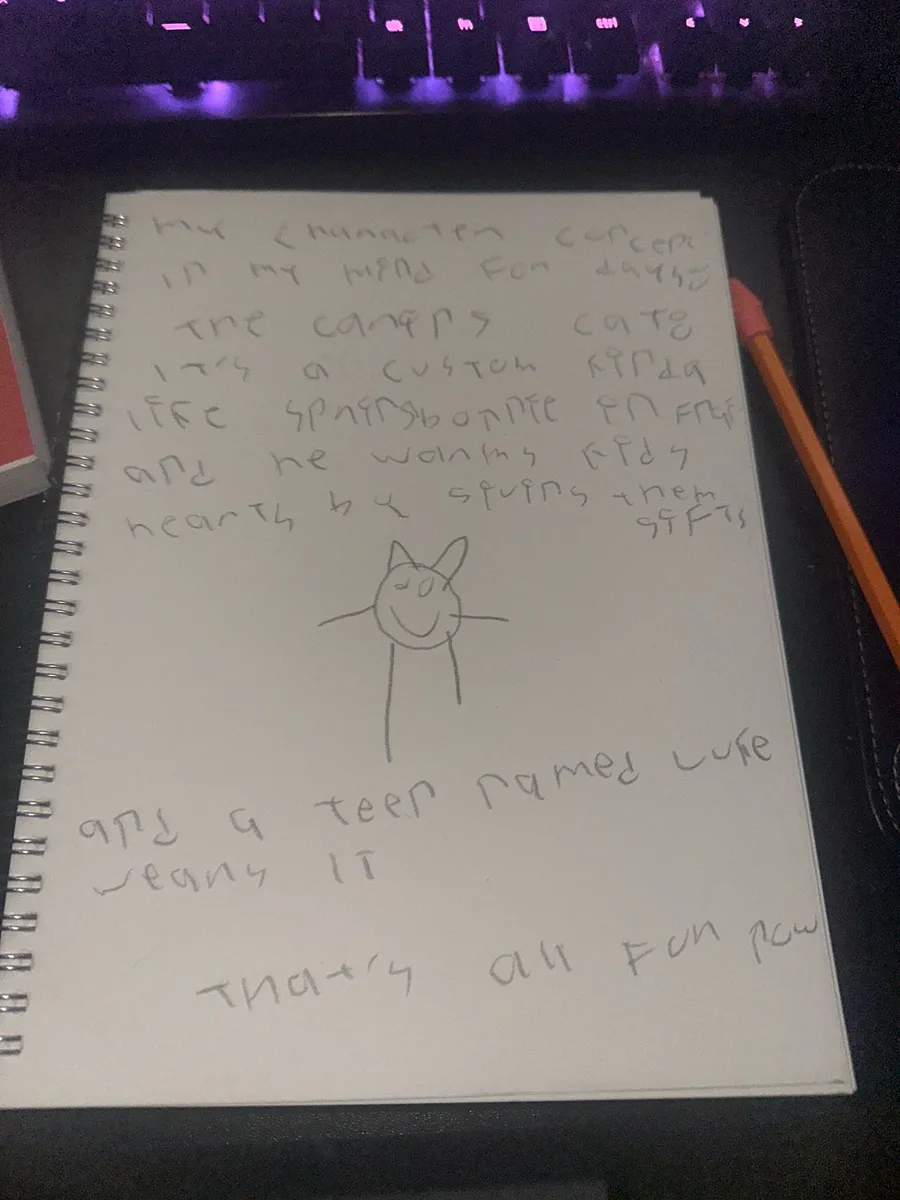 my character concept
in my mind for days:
the caring cat:
it's a custom kinda
like springbonnie in fnaf
and he warms kids
hearts by giving them
gifts
and a teen named Luke
wears it
that's all for now
ctrl